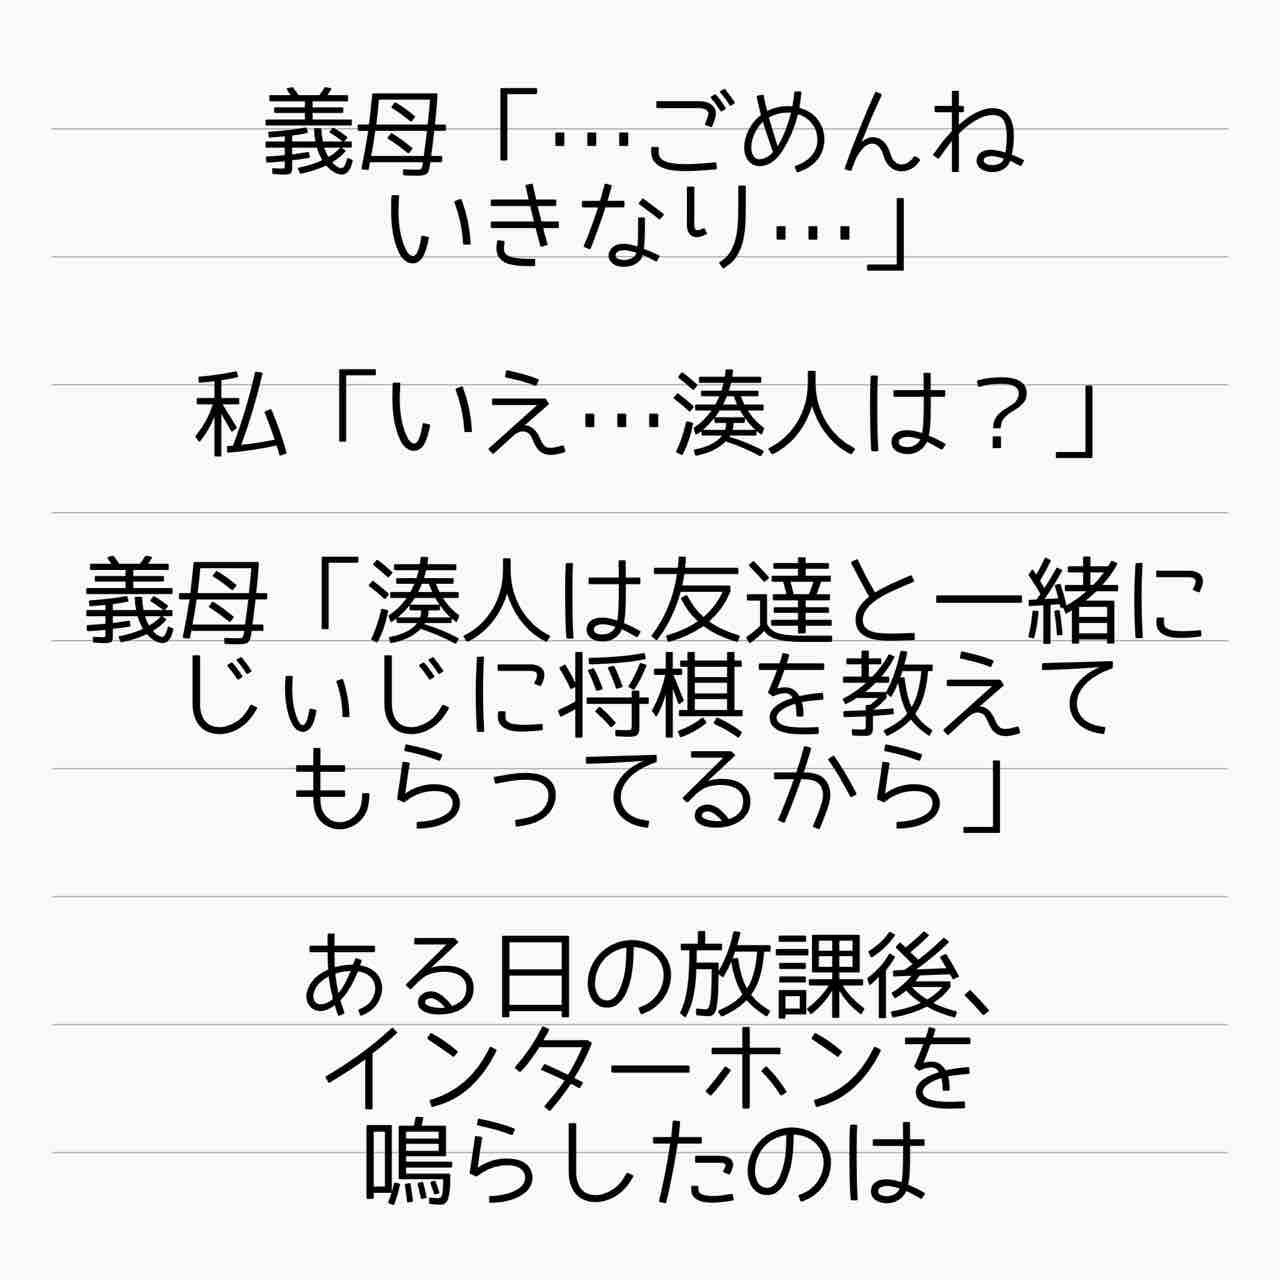 義母「…ごめんね
いきなり…」
私「いえ…湊人は？」
義母「湊人は友達と一緒に
じぃじに将棋を教えて
もらってるから」
ある日の放課後、
インターホンを
鳴らしたのは